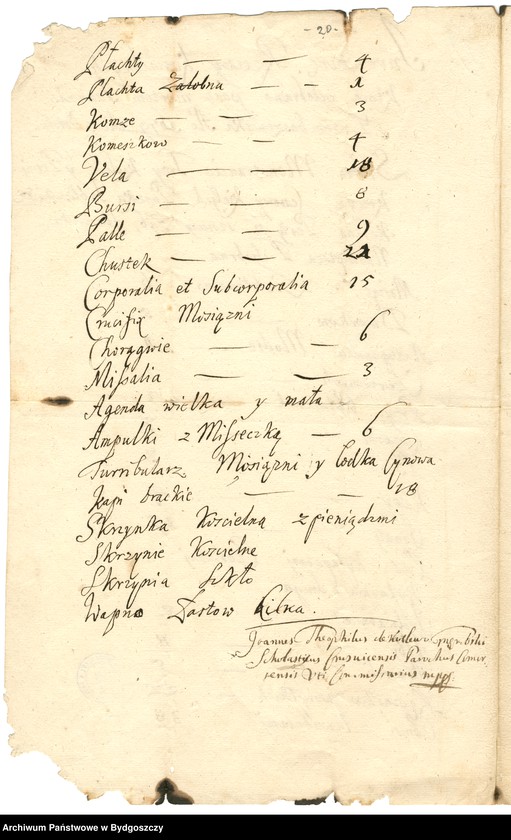 - 20 -
Płachty — — 4
Płachta Załobna — — 1
Komze — — 3
Komeszkow — — 4
Vela — 18
Bursi — — 8
Palle — — 9
Chustek — — 21
Corporalia et Subcorporalia 15
Crucifix Mosiązni
Chorągwie — — 6
Missalia — — 3
Agenda wielka y mała
Ampułki z Misseczką — 6
Turribularz Mosiązni y łodka Cynowa
Kapi brackie — — 18
Skrzynka Koscielna z pieniądzmi
Skrzynie Koscielne
Skrzynia Szkło
Wapno Łasztow kilka.
Joannes Theophilus de
Scholasticus Parochus
Commissarius mppr.
Archiwum Państwowe w Bydgoszczy